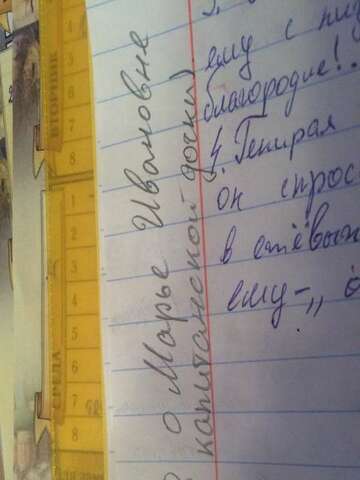 о Марье Ивановне
капитанской дочки)
ему с
благородие!
4. Генирая
он спрос
в
ему-,,
ВТОРНИК
4
5
6
7
8
СРЕДА
1
2
3
4
5
6
7
8